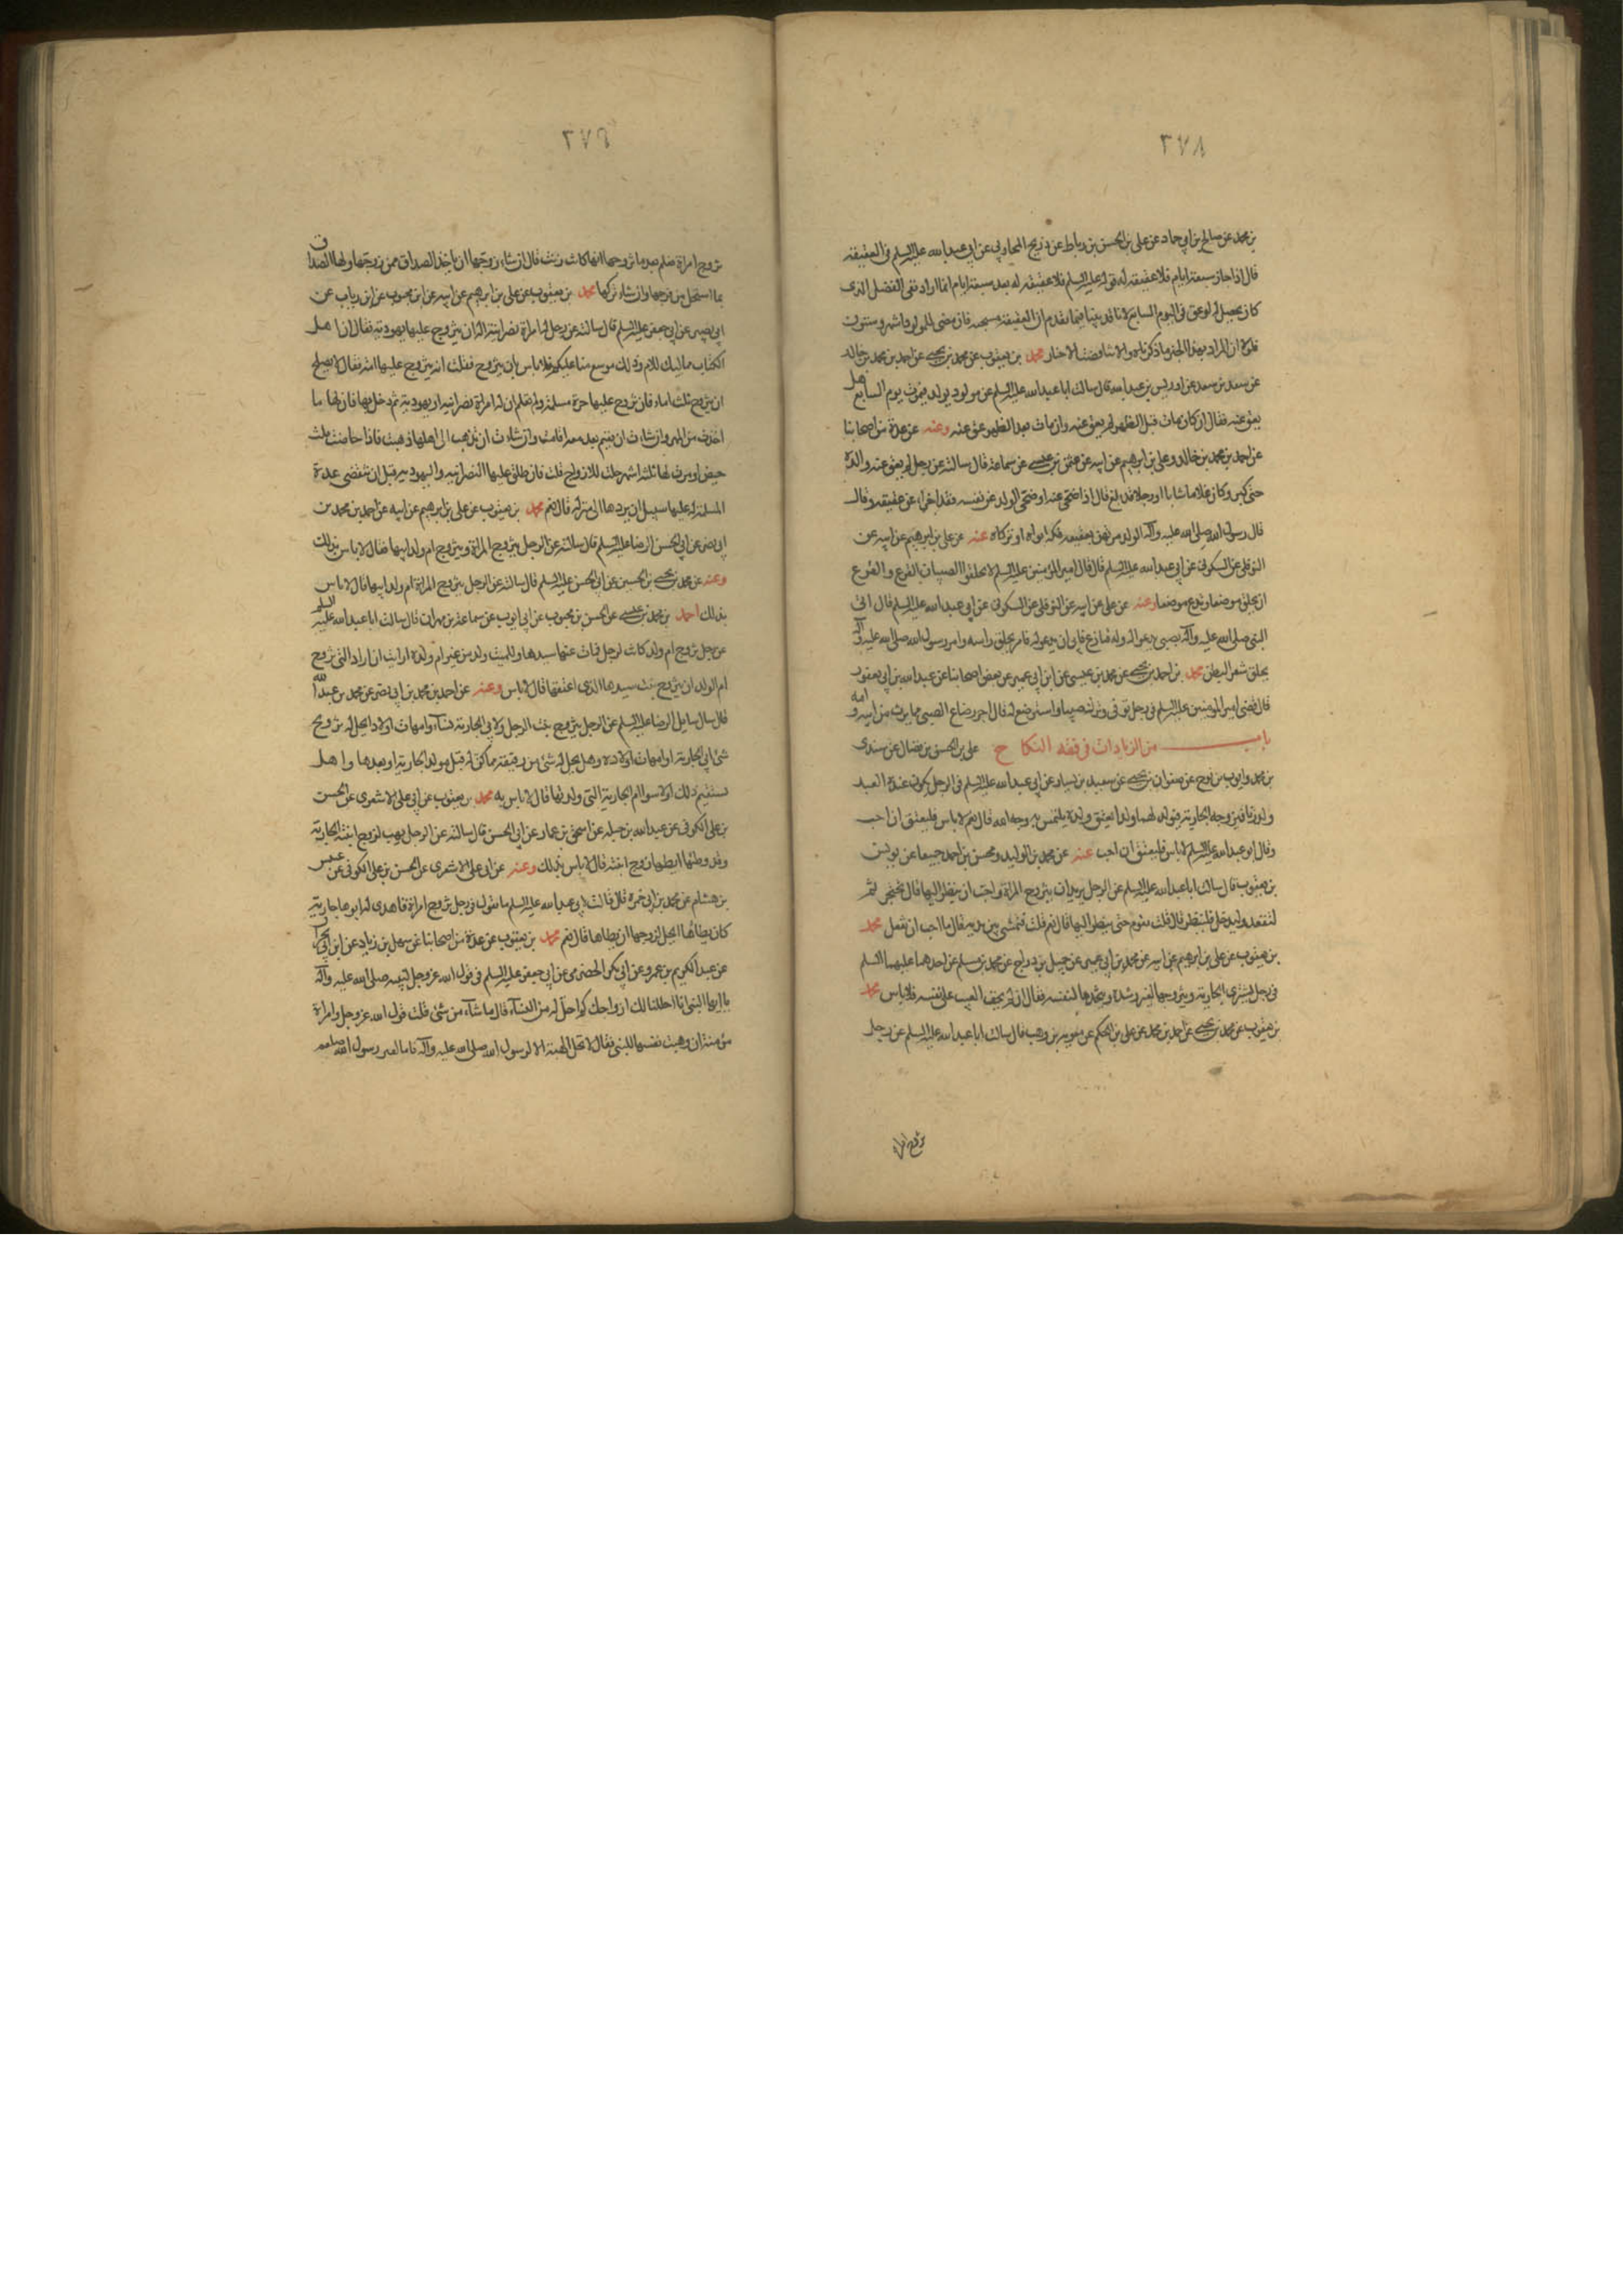 ٣٧٨
بن محمد عن صالح بن ابي حماد عن علي بن الحسن بن رباط عن ذريح المحاربي عن ابي عبد الله عليه السلم في العقيقه
قال اذا جاز سبعة ايام فلا عقيقه له قوله عليه السلم فلا عقيقه له بعد سبعة ايام انما اراد نفى الفضل الذى
كان يحصل له لو عق في اليوم السابع لانا قد بينا فيما تقدم ان العقيقة مستحبه فان مضى للمولود اشهر وسنون
فلولا ان المراد بهذا الخبر ما ذكرناه والا تناقضت الاخبار محمد بن يعقوب عن محمد بن يحيى عن احمد بن محمد بن خالد
عن سعد بن سعد عن ادريس بن عبد الله قال سالت ابا عبد الله عليه السلم عن مولود يولد فيموت يوم السابع هل
يعق عنه فقال ان كان مات قبل الظهر لم يعق عنه وان مات بعد الظهر عق عنه وعنه عن عدة من اصحابنا
عن احمد بن محمد بن خالد وعلي بن ابرهيم عن ابيه عن عثمن بن عيسى عن سماعة قال سالته عن رجل لم يعق عنه والده
حتى كبر وكان غلاما شابا او رجلا قد بلغ قال اذا ضحى عنه او ضحى الولد عن نفسه فقد اجزاه عن عقيقه وقال
قال رسول الله صلى الله عليه وآله الولد مرتهن بعقيقته فكه ابواه او تركاه عنه عن علي بن ابرهيم عن ابيه عن
النوفلي عن السكوني عن ابي عبد الله عليه السلم قال قال امير المؤمنين عليه السلم لا تحلقوا الصبيان القزع والقزع
ان يحلق موضعا ويدع موضعا وعنه عن علي عن ابيه عن النوفلي عن السكوني عن ابي عبد الله عليه السلم قال اتى
النبي صلى الله عليه وآله بصبي يدعو له وله قنازع فابى ان يدعو له فامر بحلق راسه وامر رسول الله صلى الله عليه وآله
بحلق شعر البطن محمد بن احمد بن يحيى عن محمد بن عيسى عن ابن ابي عمير عن بعض اصحابنا عن عبد الله بن ابي يعفور
قال قضى امير المؤمنين عليه السلم في رجل توفى وترك صبيا واسترضع له قال اجر رضاع الصبي مما يرث من ابيه وامه
باب من الزيادات في فقه النكاح علي بن الحسن بن فضال عن سندى
بن محمد وايوب بن نوح عن صفوان بن يحيى عن سعيد بن يسار عن ابي عبد الله عليه السلم في الرجل يكون عنده العبد
ولد زنا فيزوجه الجارية فيولد لهما ولد ايعتق ولده يلتمس به وجه الله قال نعم لا باس فليعتق ان احب
وقال ابو عبد الله عليه السلم لا باس فليعتق ان احب عنه عن محمد بن الوليد ومحسن بن احمد جميعا عن يونس
بن يعقوب قال سالت ابا عبد الله عليه السلم عن الرجل يريد ان يتزوج المراة واحب ان ينظر اليها قال تحتجز ثم
لتقعد وليدخل فلينظر قال قلت تقوم حتى ينظر اليها قال نعم قلت فتمشى بين يديه قال ما احب ان تفعل محمد
بن يعقوب عن علي بن ابرهيم عن ابيه عن محمد بن ابي عمير عن جميل بن دراج عن محمد بن مسلم عن احدهما عليهما السلم
في رجل يشترى الجارية ويتزوجها لغير رشدة ويتخذها لنفسه فقال ان لم يخف العيب على نفسه فلا باس محمد
بن يعقوب عن محمد بن يحيى عن احمد بن محمد عن علي بن الحكم عن معويه بن وهب قال سالت ابا عبد الله عليه السلم عن رجل
تزوج امراة
٣٧٩
تزوج امراة فعلم بعد ما تزوجها انها كانت زنت قال ان شاء زوجها ان ياخذ الصداق ممن زوجها ولها الصداق
بما استحل من فرجها وان شاء تركها محمد بن يعقوب عن علي بن ابرهيم عن ابيه عن ابن محبوب عن ابن رياب عن
ابي بصير عن ابي جعفر عليه السلم قال سالته عن رجل له امراة نصرانية اله ان يتزوج عليها يهودية فقال ان اهل
الكتاب مماليك للامام وذلك موسع منا عليكم فلا باس بان يتزوج فقلت انه يتزوج عليها امة فقال لا يصلح
ان يتزوج ثلث اماء فان تزوج عليها حرة مسلمة ولم تعلم ان له امراة نصرانيه او يهودية ثم دخل بها فان لها ما
اخذت من المهر وان شاءت ان تقيم بعد معه اقامت وان شاءت ان تذهب الى اهلها ذهبت فاذا حاضت ثلث
حيض او مرت لها ثلثة اشهر حلت للازواج قلت فان طلق عليها النصرانيه واليهوديه قبل ان تنقضى عدة
المسلمة له عليها سبيل ان يردها الى منزله قال نعم محمد بن يعقوب عن علي بن ابرهيم عن ابيه عن احمد بن محمد بن
ابي نصر عن ابي الحسن الرضا عليه السلم قال سالته عن الرجل يتزوج المراة ويتزوج ام ولد ابيها فقال لا باس بذلك
وعنه عن محمد بن يحيى بن الحسين عن ابي الحسن عليه السلم قال سالته عن الرجل يتزوج المراة ام ولد ابيها قال لا باس
بذلك احمد بن محمد بن عيسى عن الحسن بن محبوب عن ابي ايوب عن سماعة بن مهران قال سالت ابا عبد الله عليه السلم
عن رجل تزوج ام ولد كانت لرجل فمات عنها سيدها وللميت ولد من غير ام ولده ارايت ان اراد الذي تزوج
ام الولد ان يتزوج بنت سيدها الذى اعتقها قال لا باس وعنه عن احمد بن محمد بن ابي نصر عن محمد بن عبد الله
قال سال سايل الرضا عليه السلم عن الرجل يتزوج بنت الرجل ولابي الجارية نساء وامهات اولاد ايحل له تزويج
شئ ابي الجارية او امهات اولاده وهل يحل له شئ من رقيقه مما كن له قبل مولد الجارية او بعدها واهل
يستقيم ذلك او لا سوا ام الجارية التي ولدتها قال لا باس به محمد بن يعقوب عن ابي علي الاشعرى عن الحسن
بن علي الكوفي عن عبد الله بن جبله عن اسحق بن عمار عن ابي الحسن قال سالته عن الرجل يهب لزوج ابنته الجارية
وقد وطئها ايطاها زوج ابنته قال لا باس بذلك وعنه عن ابي علي الاشعرى عن الحسن بن علي الكوفي عن عبيس
بن هشام عن محمد بن ابي حمزه قال قالت لابي عبد الله عليه السلم ما تقول في رجل تزوج امراة فاهدى لها ابوها جارية
كان يطائها ايحل لزوجها ان يطاها قال نعم محمد بن يعقوب عن عدة من اصحابنا عن سهل بن زياد عن ابن ابي نجران
عن عبد الكريم بن عمرو عن ابي بكر الحضرمى عن ابي جعفر عليه السلم في قول الله عز وجل لنبيه صلى الله عليه وآله
يا ايها النبي انا احللنا لك ازواجك كم احل له من النساء قال ما شاء من شئ قلت قول الله عز وجل وامراة
مؤمنة ان وهبت نفسها للنبي فقال لا تحل الهبة الا لرسول الله صلى الله عليه وآله فاما لغير رسول الله